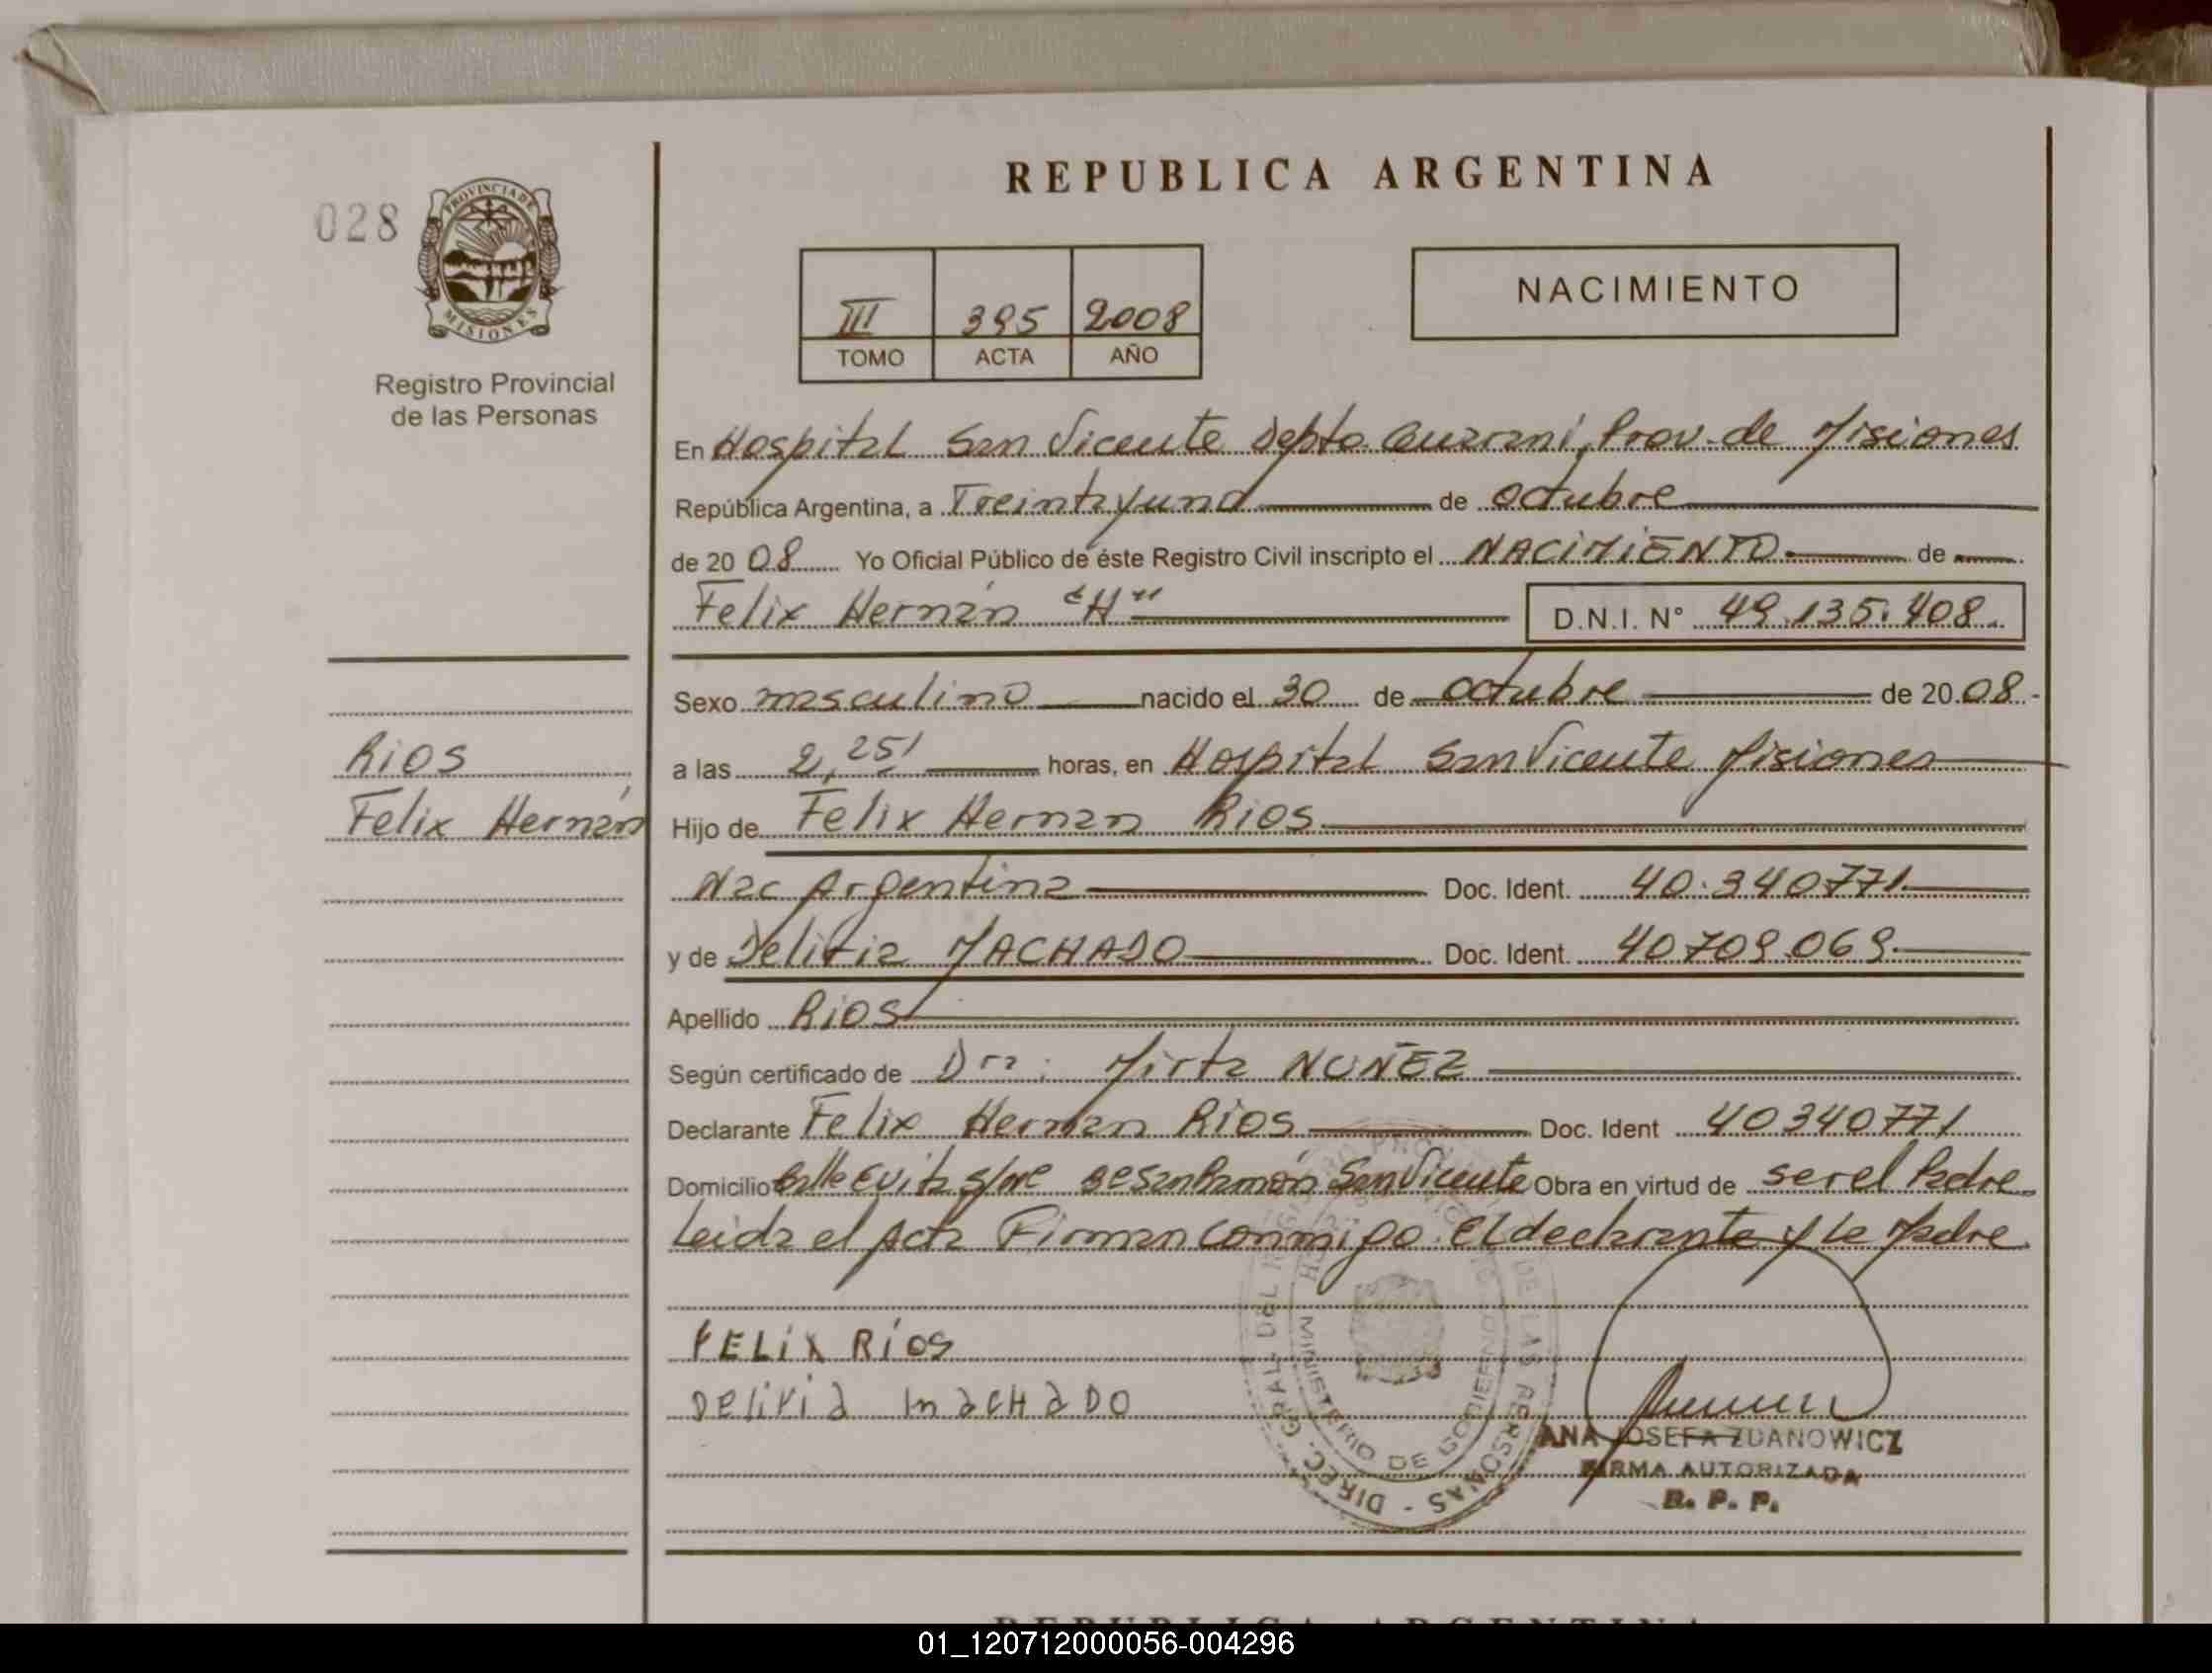 REPUBLICA ARGENTINA
028
PROVINCIA DE MISIONES
Registro Provincial
de las Personas
III 395 2008
TOMO ACTA AÑO
NACIMIENTO
En Hospital San Vicente Depto Guaraní, Prov. de Misiones
República Argentina, a Treinta y uno de octubre
de 20 08 Yo Oficial Público de éste Registro Civil inscripto el NACIMIENTO de
Felix Hernán "H" D.N.I. N° 49.135.408.
Sexo masculino nacido el 30 de octubre de 20 08
a las 2,25' horas, en Hospital San Vicente Misiones
Rios
Felix Hernán
Hijo de Felix Hernan Rios
Nac Argentina Doc. Ident. 40.340771
y de Delitia MACHADO Doc. Ident. 40709069
Apellido Rios
Según certificado de Dra: Mirta NUÑEZ
Declarante Felix Hernan Rios Doc. Ident 40340771
Domicilio Calle Evita s/n San Vicente Obra en virtud de ser el Padre
Leida el Acta Firman conmigo El declarante y la Madre
FELIX RíOS
MACHADO
DIREC. GRAL. DEL REGISTRO PROV. DE LAS PERSONAS
MINISTERIO DE GOBIERNO
ANA JOSEFA ZDANOWICZ
FIRMA AUTORIZADA
R. P. P.
REPUBLICA ARGENTINA
01_120712000056-004296